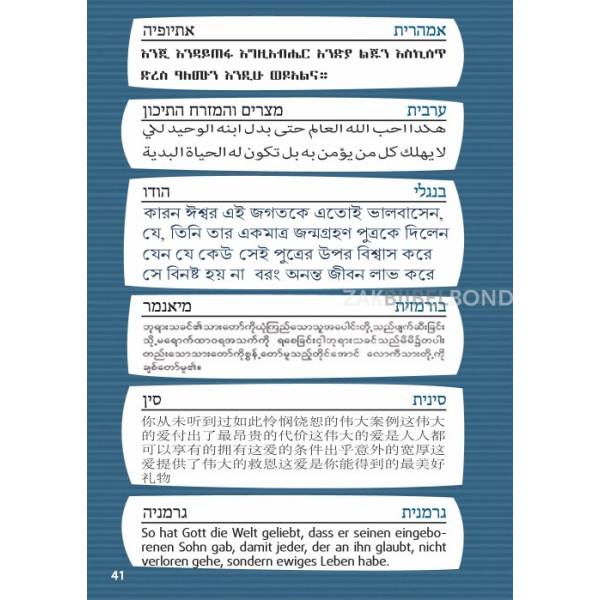 אמהרית אתיופיה
እንጂ እንዳይጠፋ እግዚአብሔር አንድያ ልጁን እስኪሰጥ
ድረስ ዓለሙን እንዲሁ ወዶአልና።
ערבית מצרים והמזרח התיכון
هكذا احب الله العالم حتى بذل ابنه الوحيد لكي
لا يهلك كل من يؤمن به بل تكون له الحياة البدية
בנגלי הודו
কারন ঈশ্বর এই জগতকে এতোই ভালবাসেন,
যে, তিনি তার একমাত্র জন্মগ্রহণ পুত্রকে দিলেন
যেন যে কেউ সেই পুত্রের উপর বিশ্বাস করে
সে বিনষ্ট হয় না বরং অনন্ত জীবন লাভ করে
ZAKBIJBELBOND
בורמזית מיאנמר
ဘုရားသခင်၏သားတော်ကိုယုံကြည်သောသူအပေါင်းတို့သည်ပျက်စီးခြင်း
သို့မရောက်ထာဝရအသက်ကို ရစေခြင်းငှါဘုရားသခင်သည်မိမိ၌တပါး
တည်းသောသားတော်ကိုစွန့်တော်မူသည့်တိုင်အောင် လောကီသားတို့ကို
ချစ်တော်မူ၏။
סינית סין
你从未听到过如此怜悯饶恕的伟大案例这伟大
的爱付出了最昂贵的代价这伟大的爱是人人都
可以享有的拥有这爱的条件出乎意外的宽厚这
爱提供了伟大的救恩这爱是你能得到的最美好
礼物
גרמנית גרמניה
So hat Gott die Welt geliebt, dass er seinen eingebo-
renen Sohn gab, damit jeder, der an ihn glaubt, nicht
verloren gehe, sondern ewiges Leben habe.
41